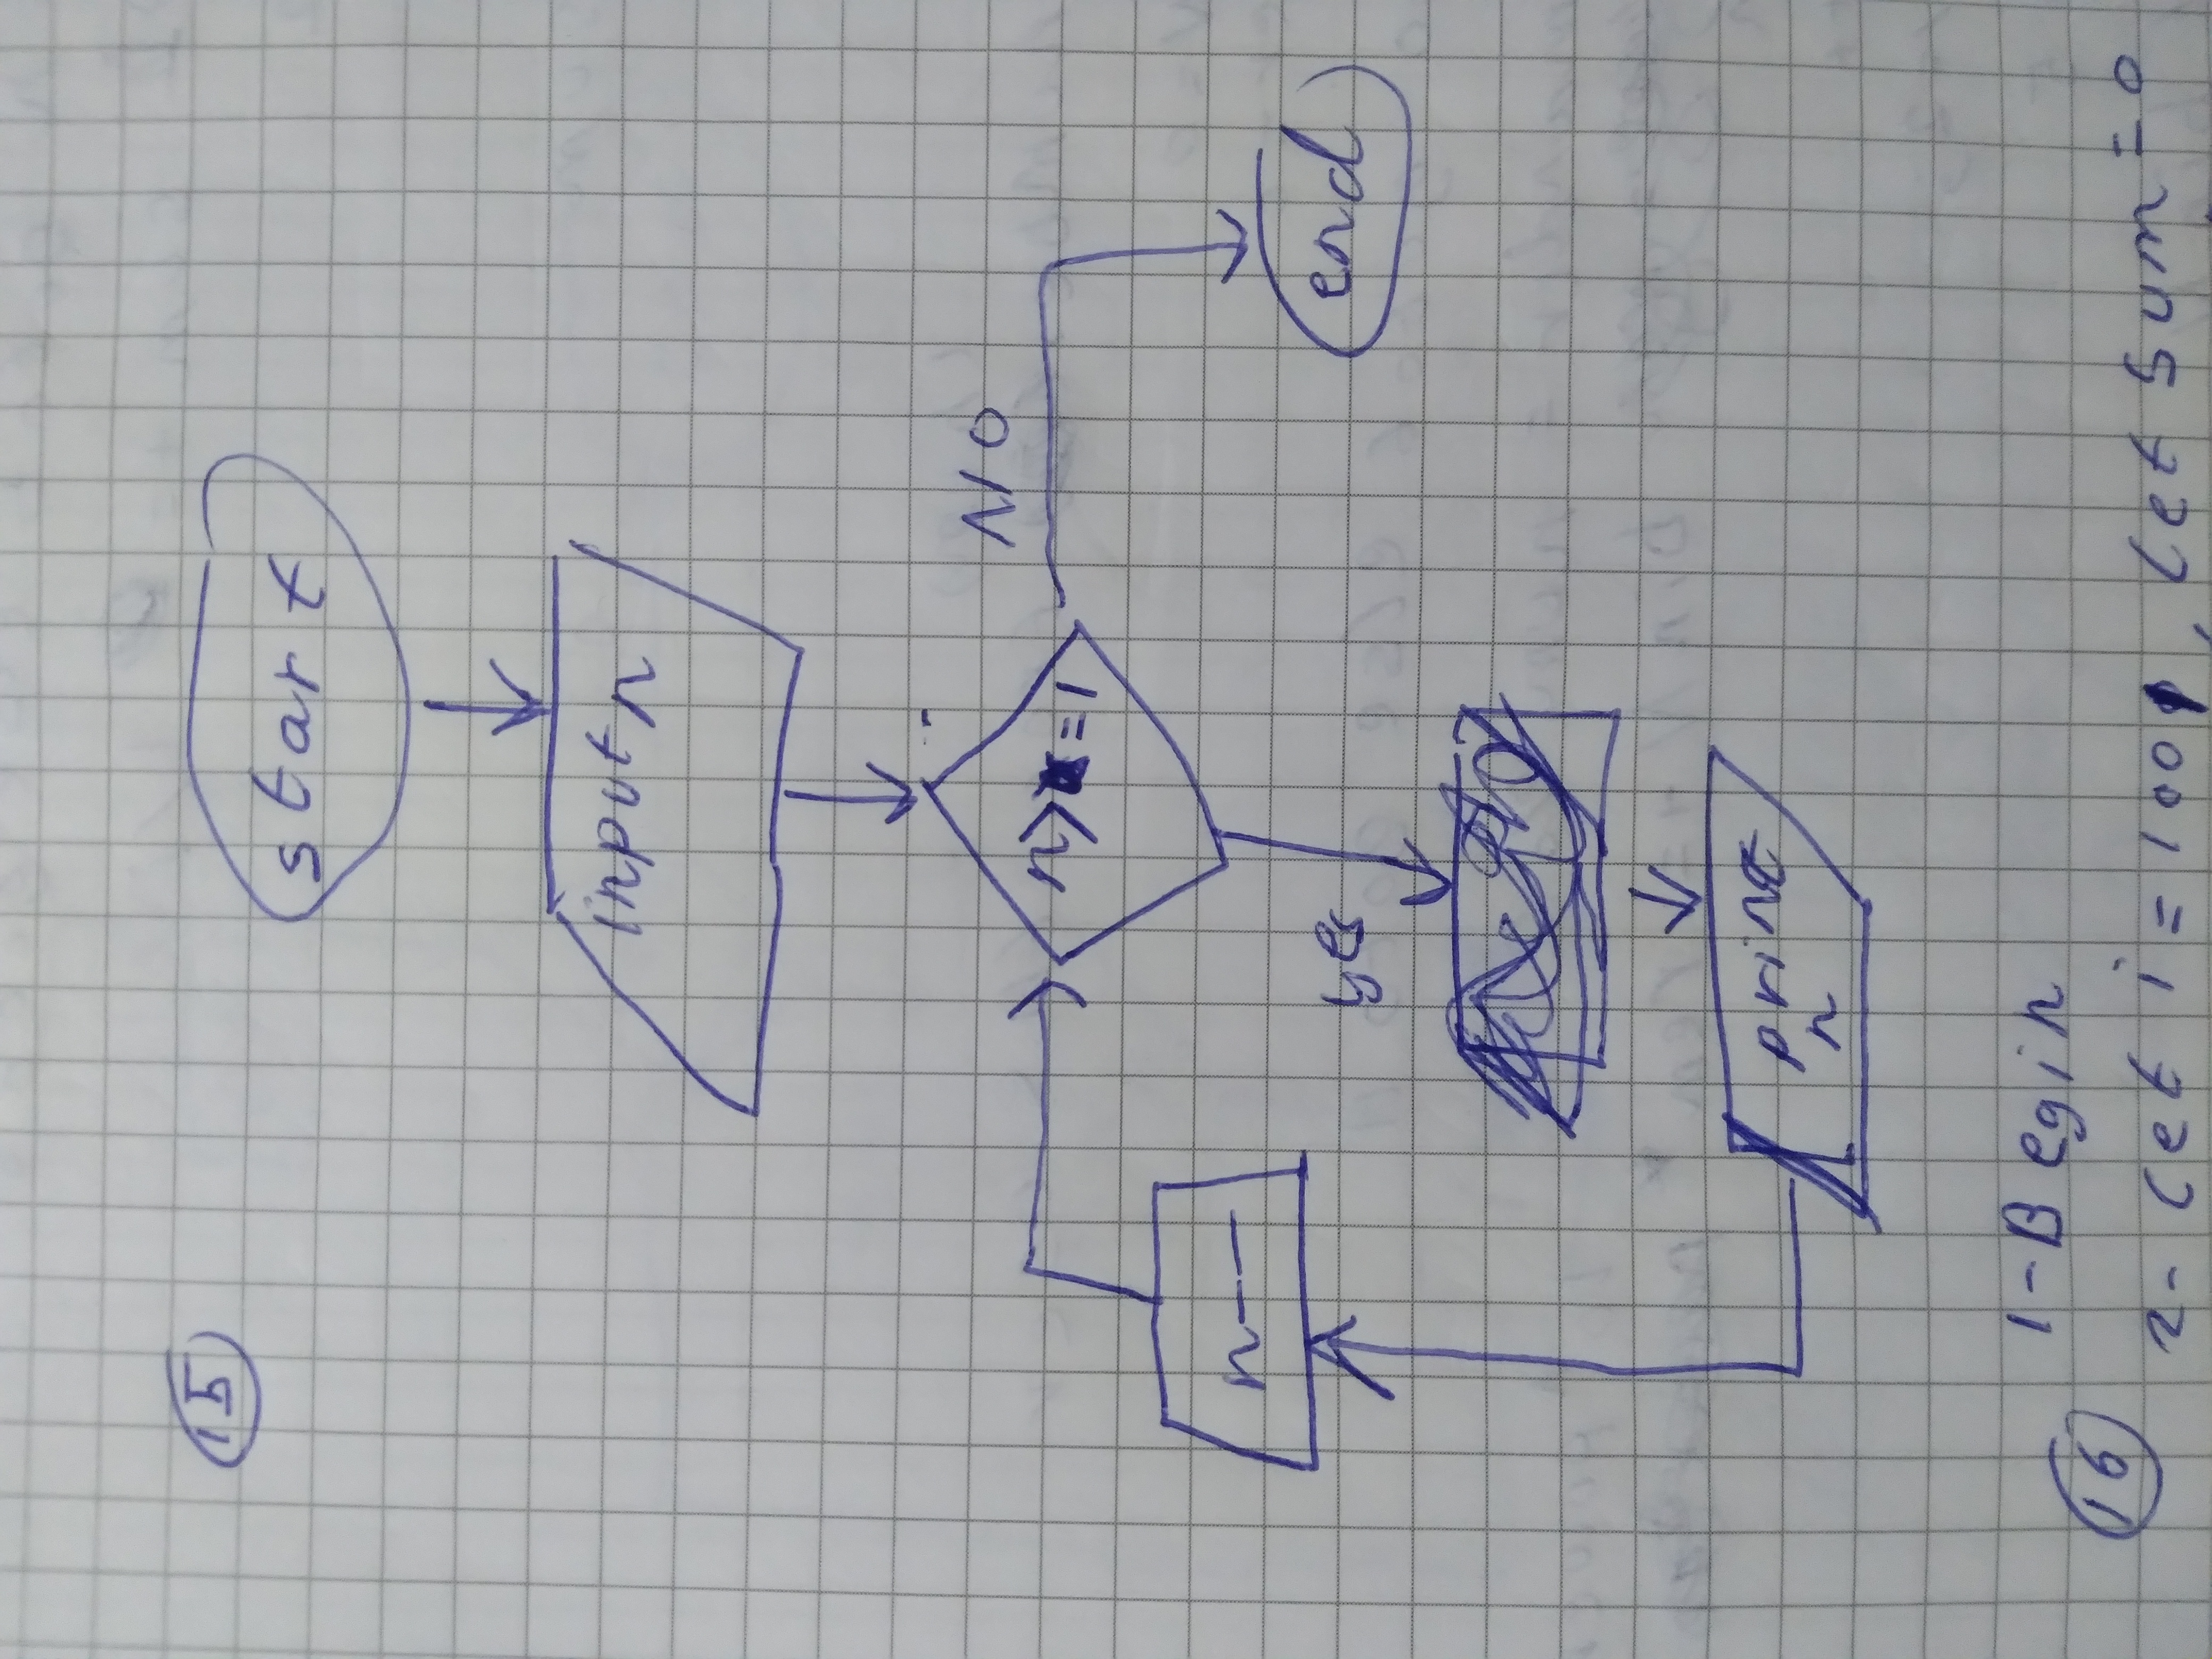 15
start
input n
n>=1
NO
n--
yes
end
print
n
16
1-Begin
2- Let i = 1001, Let sum = 0